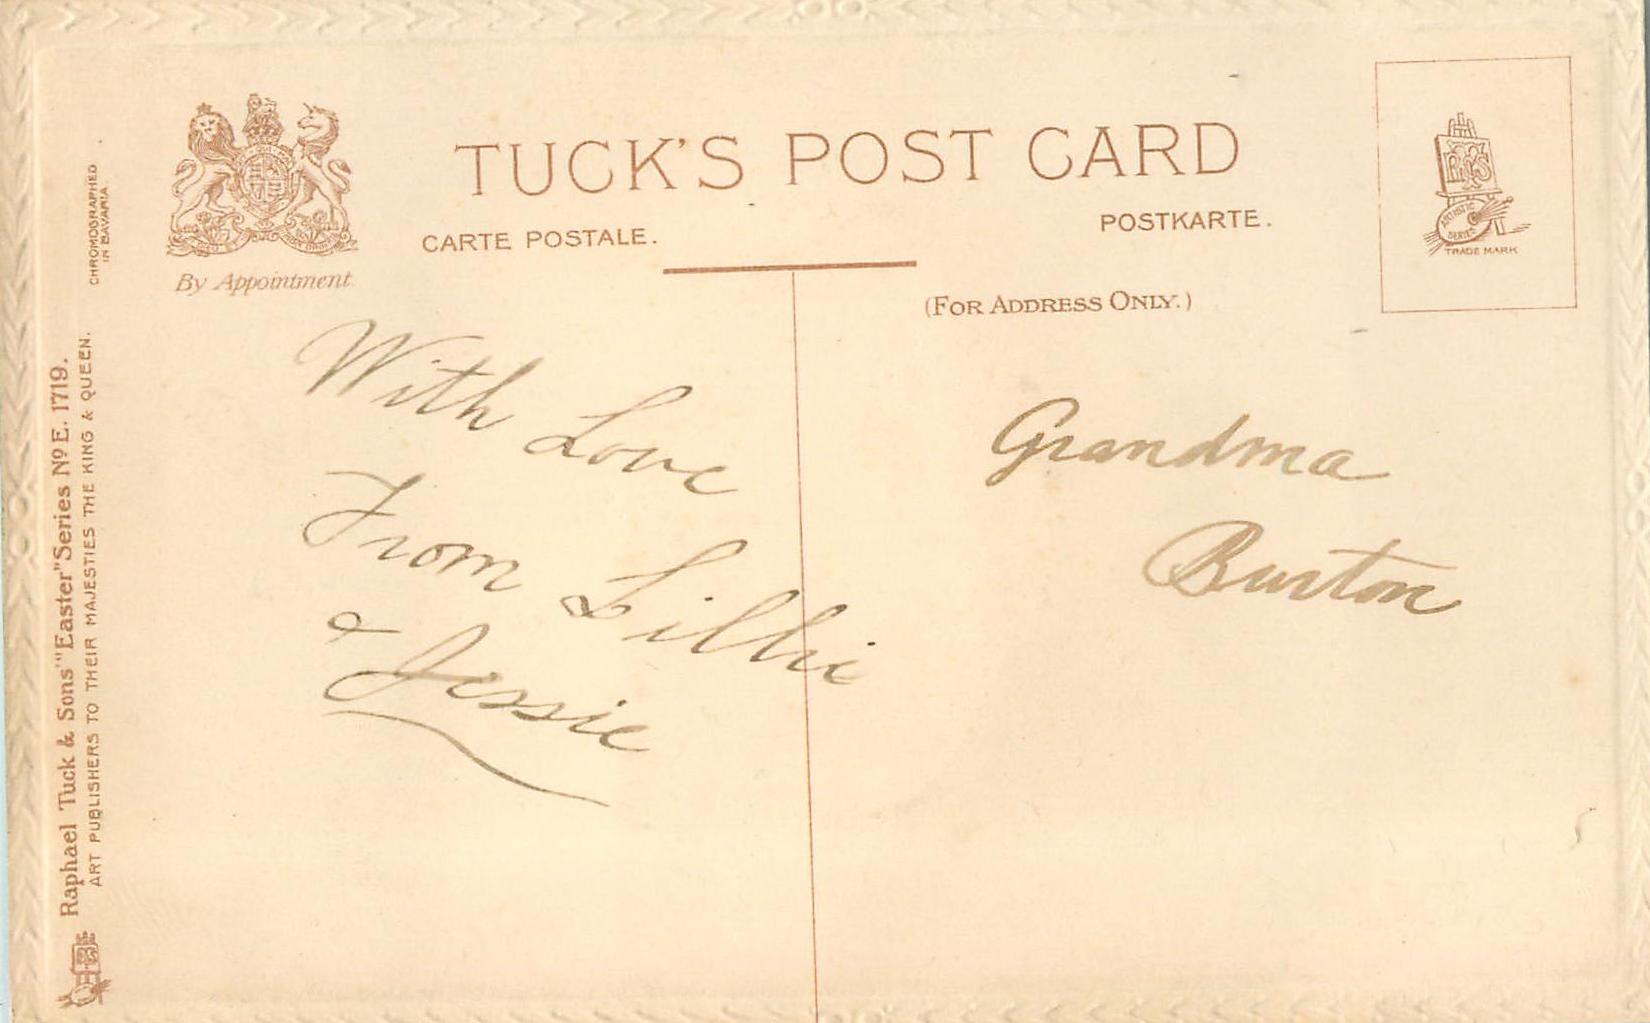 TUCK'S POST CARD
CARTE POSTALE.
POSTKARTE.
By Appointment
(FOR ADDRESS ONLY.)
RTS
ARTISTIC
SERIES
TRADE MARK
CHROMOGRAPHED
IN BAVARIA.
Raphael Tuck & Sons' "Easter" Series Nº E. 1719.
ART PUBLISHERS TO THEIR MAJESTIES THE KING & QUEEN.
With Love
From Lillie
& Jessie
Grandma
Burton